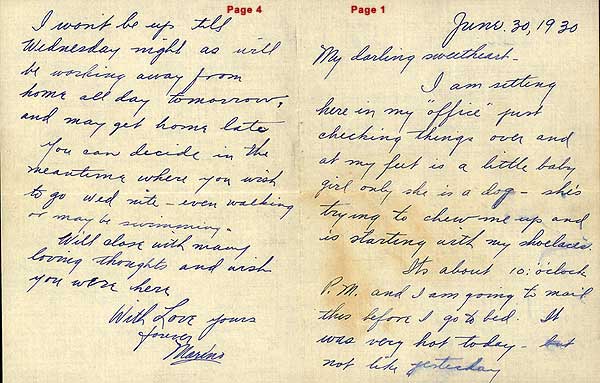 Page 4
I won't be up till
Wednesday night as will
be working away from
home all day tomorrow,
and may get home late
You can decide in the
meantime where you wish
to go Wed nite - even walking
or may be swimming.
Will close with many
loving thoughts and wish
you were here
With Love yours
forever
Marino
Page 1
June. 30, 1930
My darling sweetheart -
I am sitting
here in my "office" just
checking things over and
at my feet is a little baby
girl only she is a dog - she's
trying to chew me up and
is starting with my shoelaces.
Its about 10:o'clock
P.M. and I am going to mail
this before I go to bed. It
was very hot today - but
not like yesterday